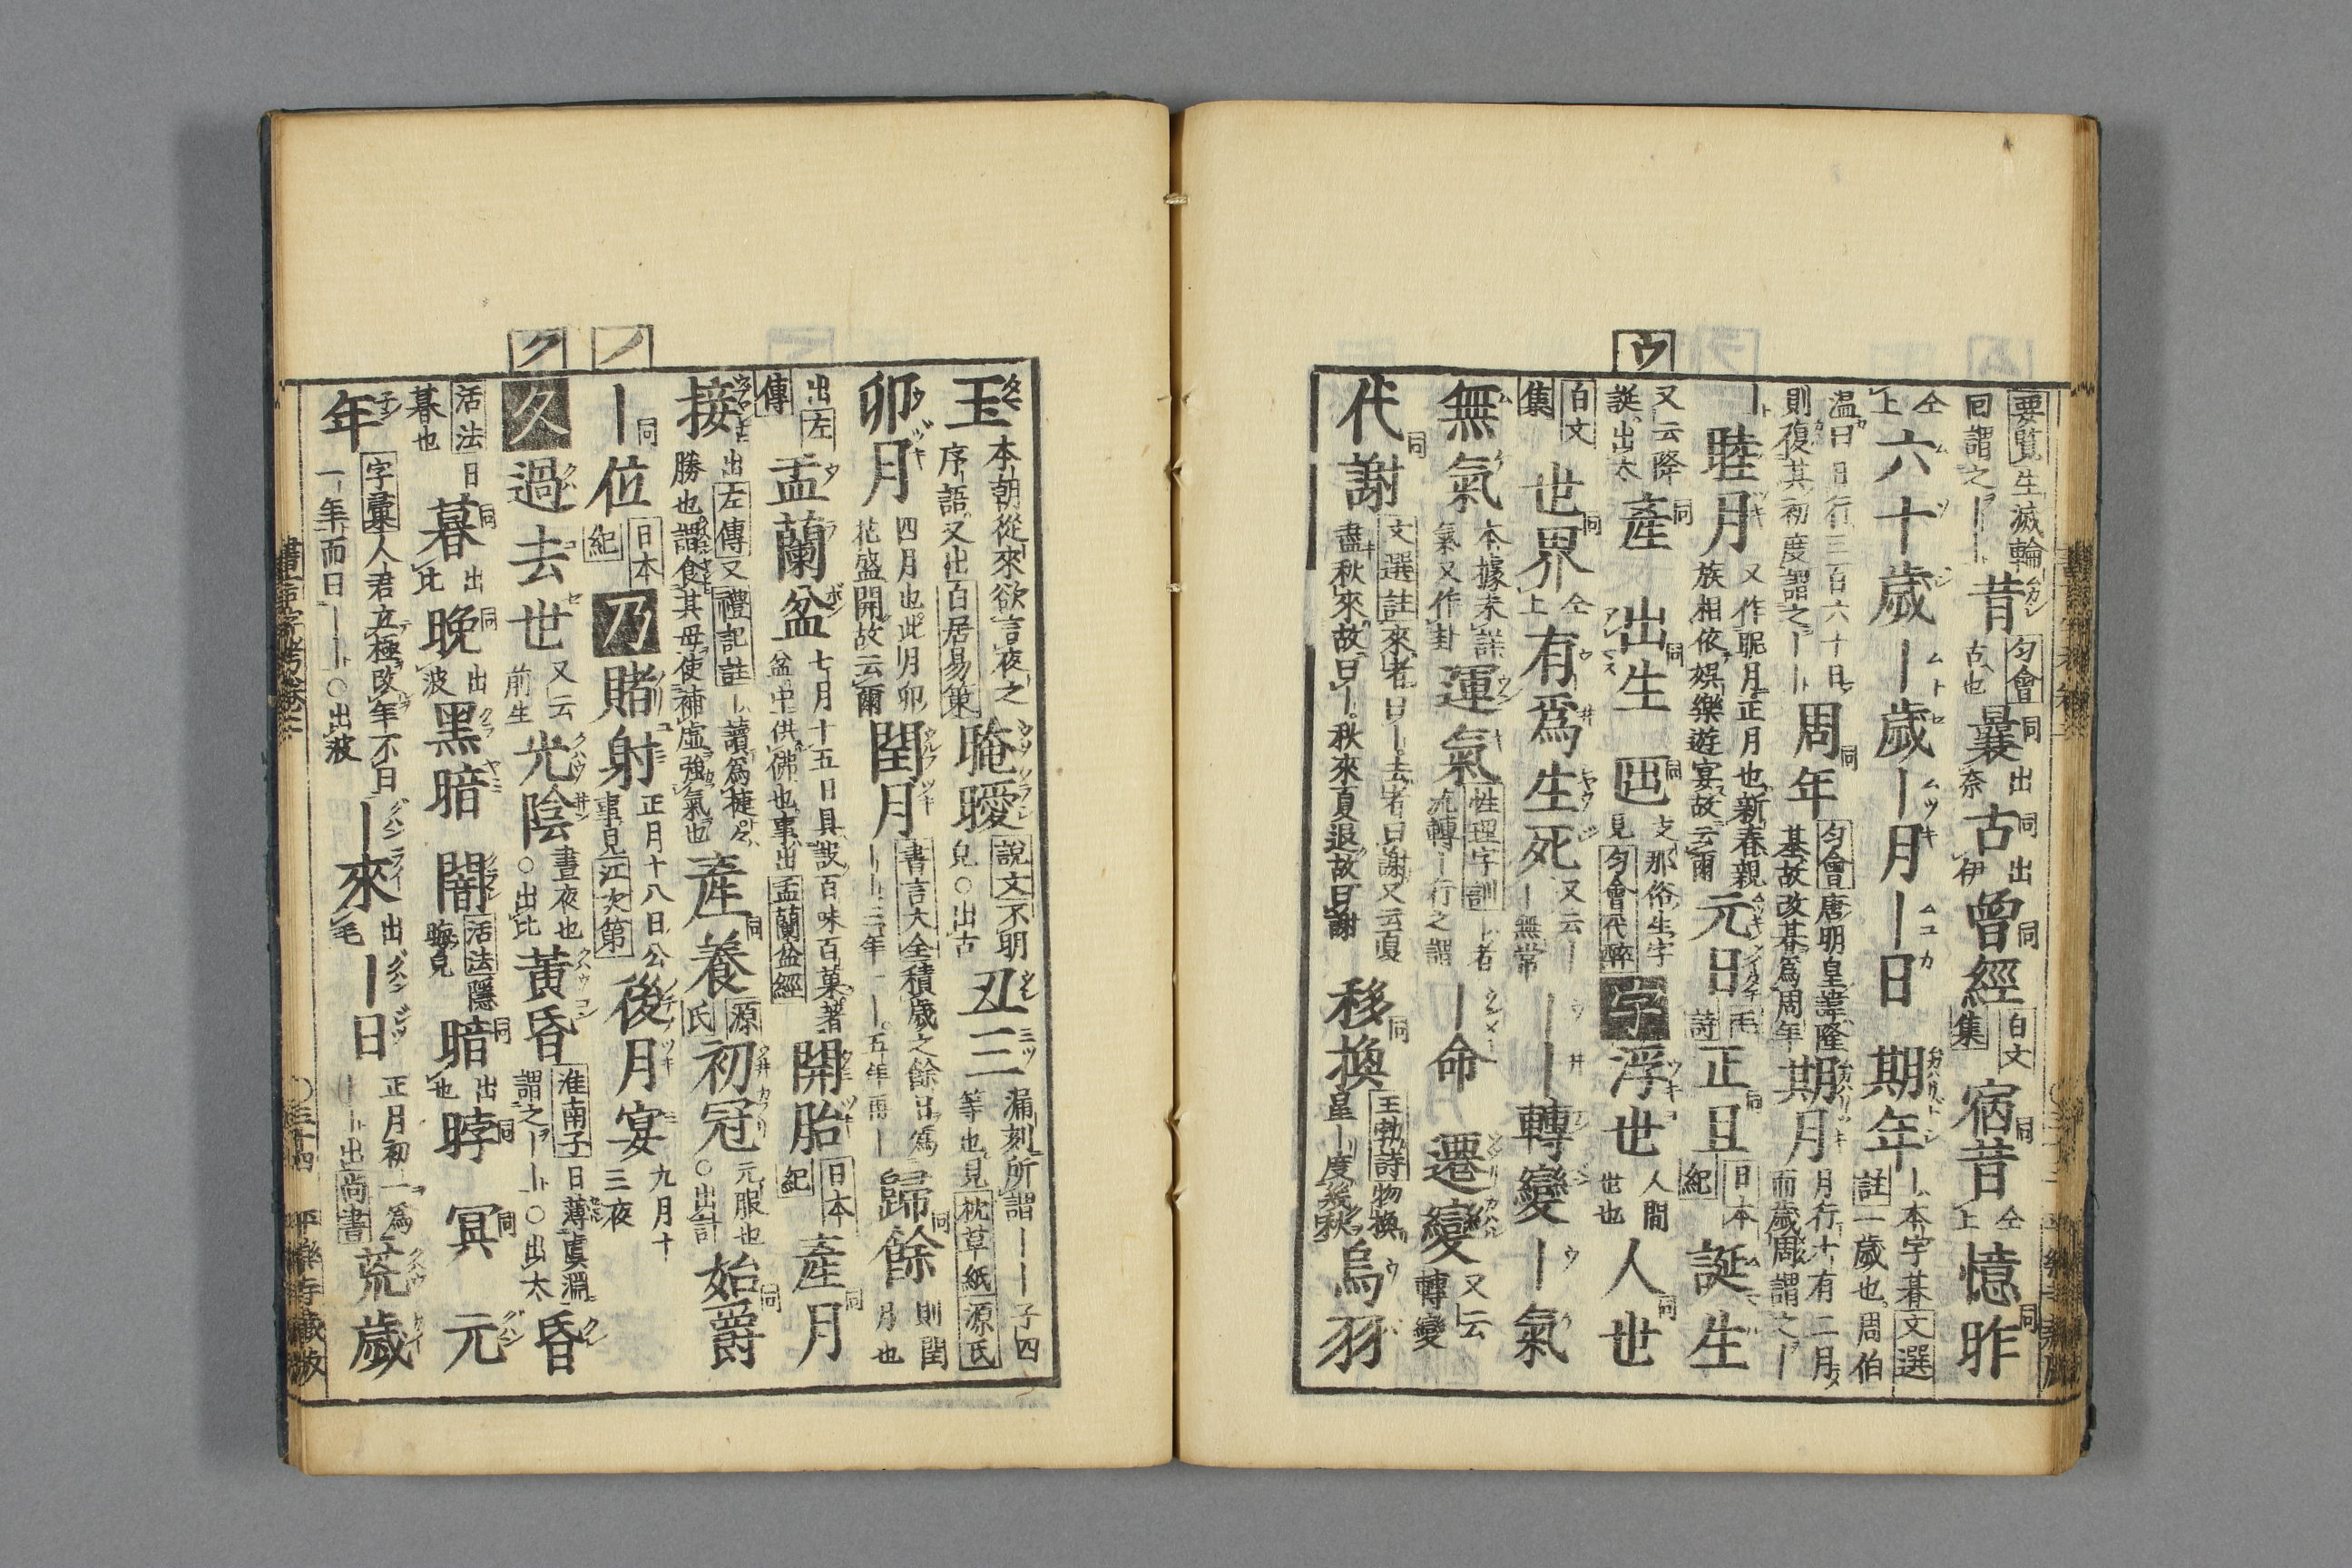 ウ
要覧生滅輪
囘謂之｜｜昔匀會古也曩同出奈古同出伊曾經同白文集宿昔同仝上憶昨同
仝上六十歳｜歳｜月｜日期年｜本字朞文選註一歳也周伯
温曰日行三百六十日則復其初度謂之｜｜周年同匀會唐明皇諱隆基故改朞爲周年期月月行十有二月而歳周謂之｜
｜睦月又作昵月正月也新春親族相依娯樂遊宴故云爾元日毛詩正旦同日本紀誕生
又云降誕出太產同出生同𡴭同支那俗生字見匀會代醉宇浮世人間世也人世同
白文集世界同仝上有爲生死又云｜｜無常｜｜轉變｜氣
無氣本據未詳氣又作封運氣性理字訓｜者流轉｜行之謂｜命遷變又云轉變
代謝同文選註來者曰｜去者曰謝又云夏盡秋來故曰｜秋來夏退故曰謝移換同王勃詩物換皇｜度幾秋烏羽
玉本朝從來欲言夜之序語又出白居易集晻曖說文不明皃○出古丑三漏刻所謂｜｜子四等也見枕草紙源氏
卯月四月也此月卯花盛開故云爾閏月書言大全積歳之餘日爲｜｜三年一｜五年再｜歸餘同則閏月也
出左傳盂蘭盆七月十五日具設百味百菓著盆中供佛也事出盂蘭盆經開胎日本紀產月同
接出左傳又禮記註｜讀爲捷々勝也謂食其母使補虛強氣也產養同源氏初冠元服也○出計始爵同
ノ
｜位同日本紀乃賭射正月十八日公事見江次第後月宴九月十三夜
ク
久過去世又云前生光陰晝夜也○出比黃昏淮南子日薄虞淵謂之｜｜○出太昏
活法日暮也暮同出比晚同出波黑暗闇活法隱晦皃暗同出也暭同冥同元
年字彙人君立極改年不曰一年而曰｜｜○出波｜來出毛｜日正月初一爲｜｜出尚書荒歲
書言字考卷二
○三十四
平樂寺藏板